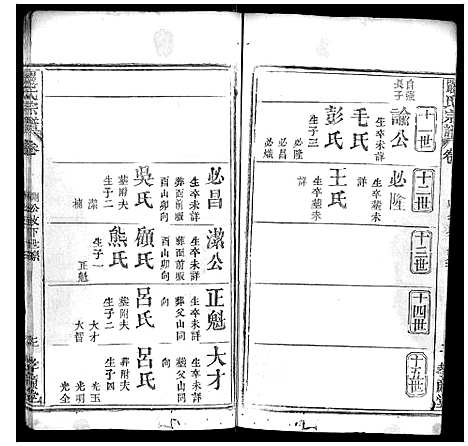 氏宗譜
卷
十一世
十二世
十三世
十四世
十五世
自強
長子
諭公
生卒未詳
毛氏
彭氏
生子三
必隆
必昌
必熾
必隆
生卒未詳
王氏
詳
必昌
生卒未詳
葬面前嘏
酉山卯向
吳氏
葬附夫
生子二
潔
楠
潔公
生卒未詳
葬面前嘏
酉山卯向
顧氏
熊氏
生子一
正魁
正魁
生卒未詳
葬父山同
向
呂氏
葬附夫
生子二
大才
大智
大才
生卒未詳
葬父山同
向
呂氏
葬附夫
生子四
光玉
光大
光全
氏宗譜
卷